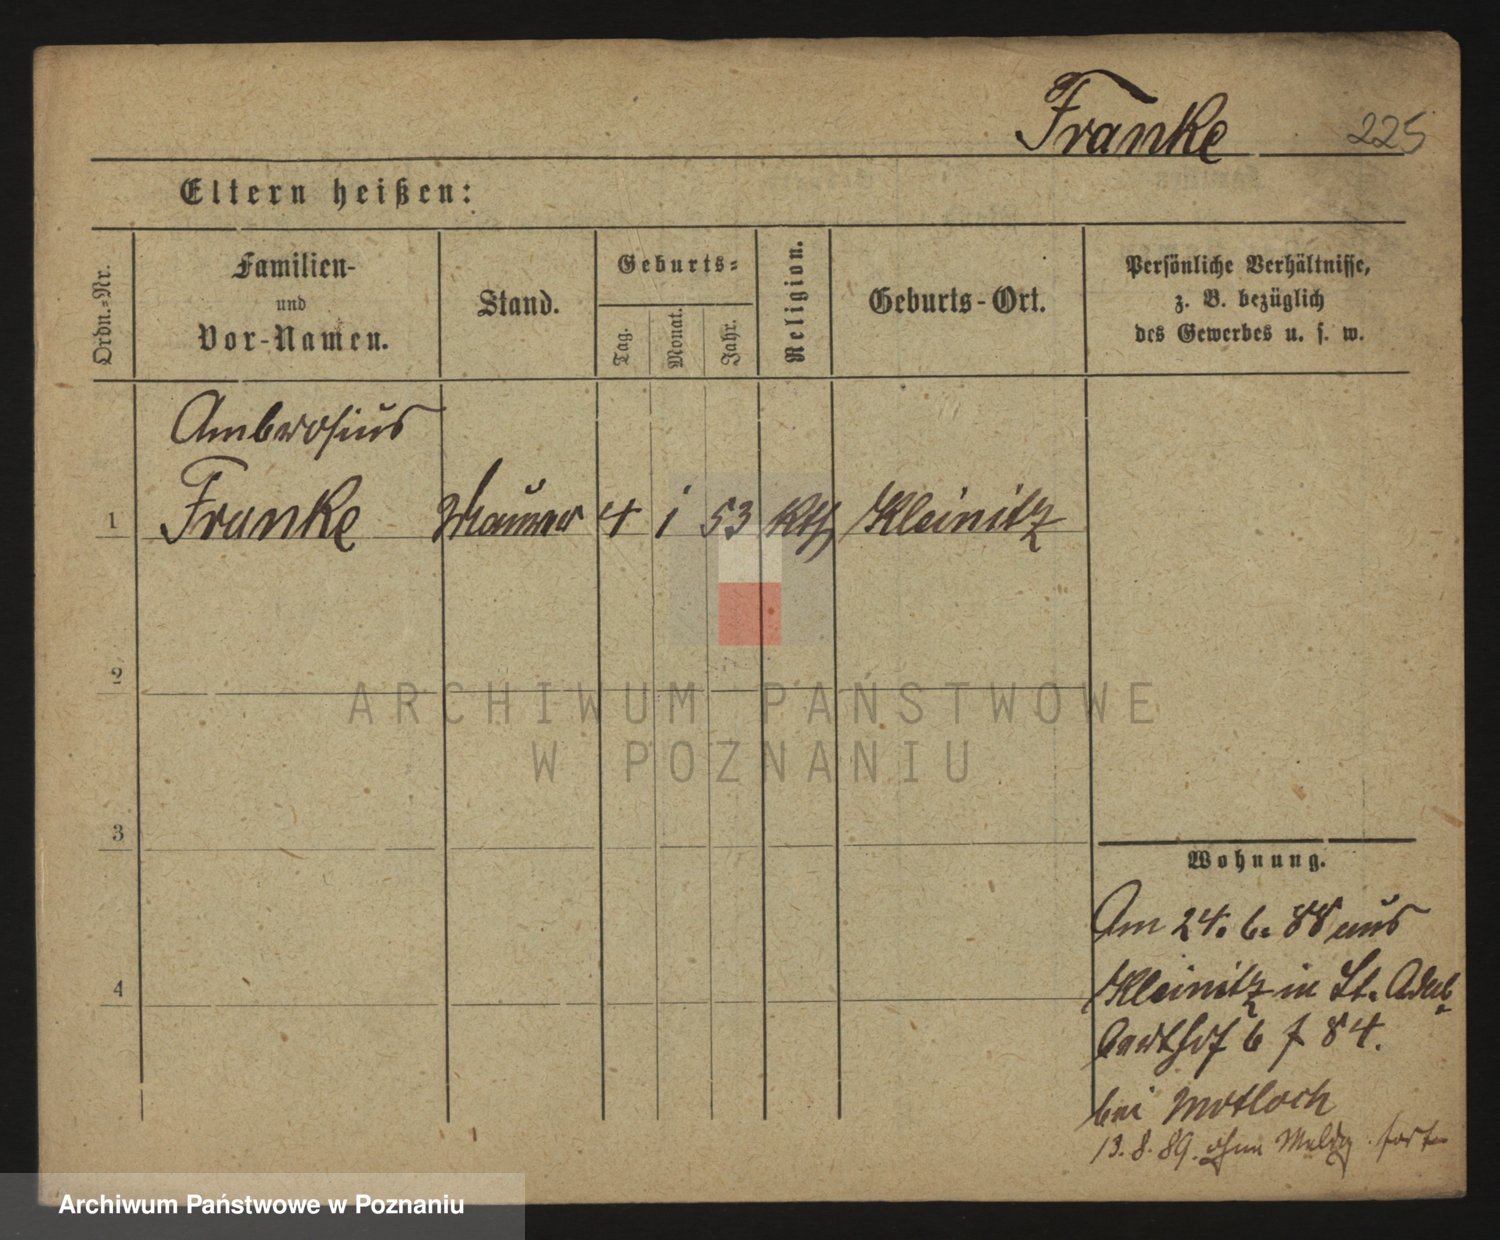 Franke 225
Eltern heißen:
Ordn.-Nr.
Familien-
und
Vor-Namen.
Stand.
Geburts-
Tag.
Monat.
Jahr.
Religion.
Geburts-Ort.
Persönliche Verhältnisse,
z. B. bezüglich
des Gewerbes u. s. w.
Ambrosius
1 Franke Maurer 4 1 53 Kth Kleinitz
2
ARCHIWUM PAŃSTWOWE
W POZNANIU
3
4
Wohnung.
Am 24. 6. 88 aus
Kleinitz in St. Adal
berthof 6 f 84.
bei Motloch
13. 8. 89. ohne Meldg fort
Archiwum Państwowe w Poznaniu